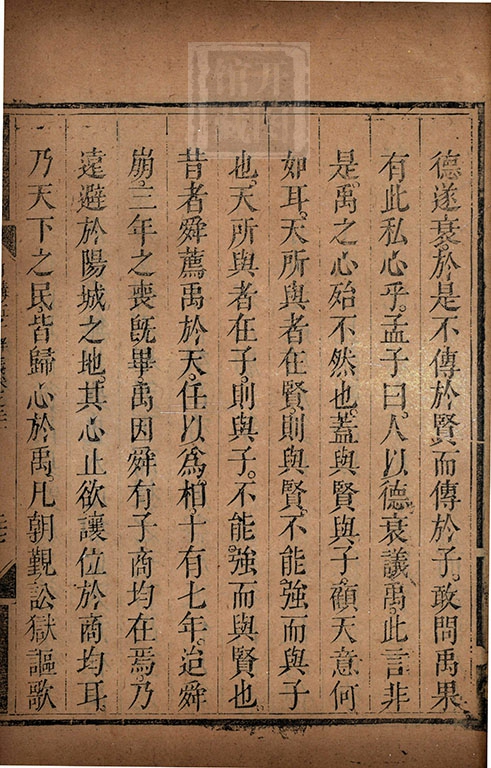 德遂衰於是不傳於賢而傳於子敢問禹果
有此私心乎孟子曰人以德衰議禹此言非
是禹之心殆不然也蓋與賢與子顧天意何
如耳天所與者在賢則與賢不能強而與子
也天所與者在子則與子不能強而與賢也
昔者舜薦禹於天任以爲相十有七年迨舜
崩三年之喪旣畢禹因舜有子商均在焉乃
遠避於陽城之地其心止欲讓位於商均耳
乃天下之民皆歸心於禹凡朝覲訟獄謳歌